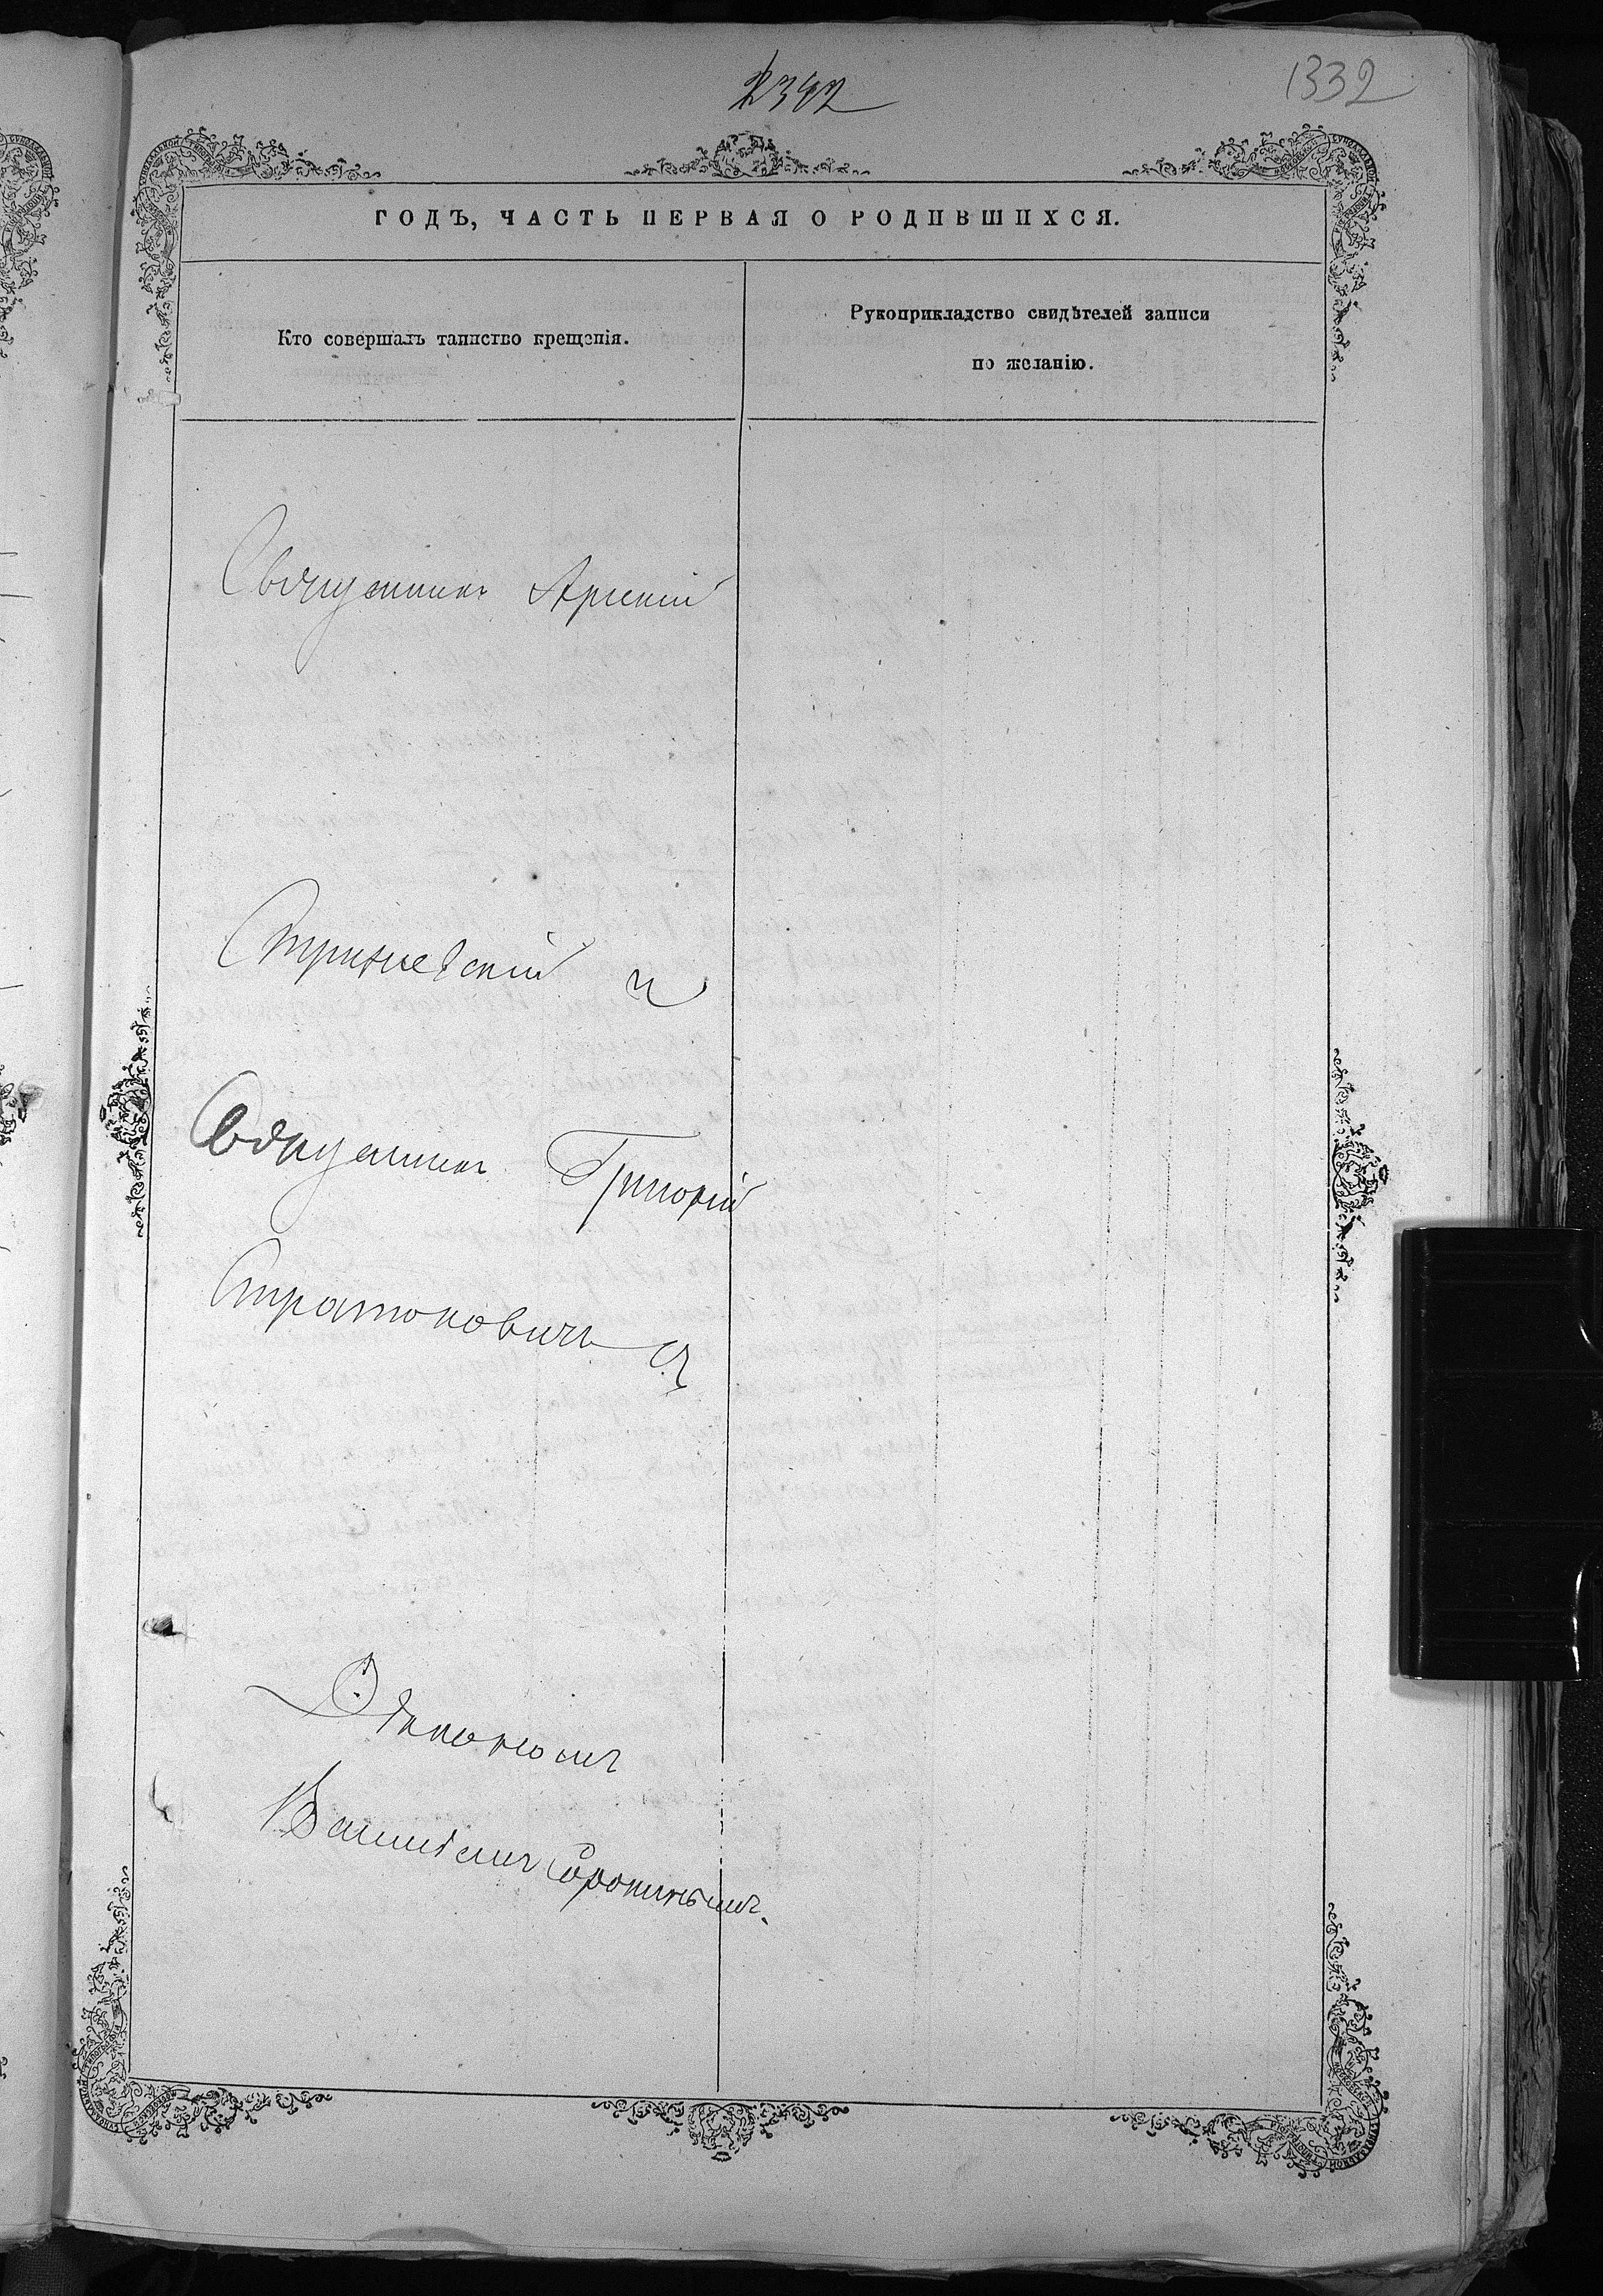 2392
1332
ГОДЪ, ЧАСТЬ ПЕРВАЯ О РОДИВШИХСЯ.
Кто совершалъ таинство крещенія.
Рукоприкладство свидѣтелей записи
по желанію.
Священникъ
и
Священникъ Григорій
Стратоновичъ
Дiакономъ
Сорокинымъ.